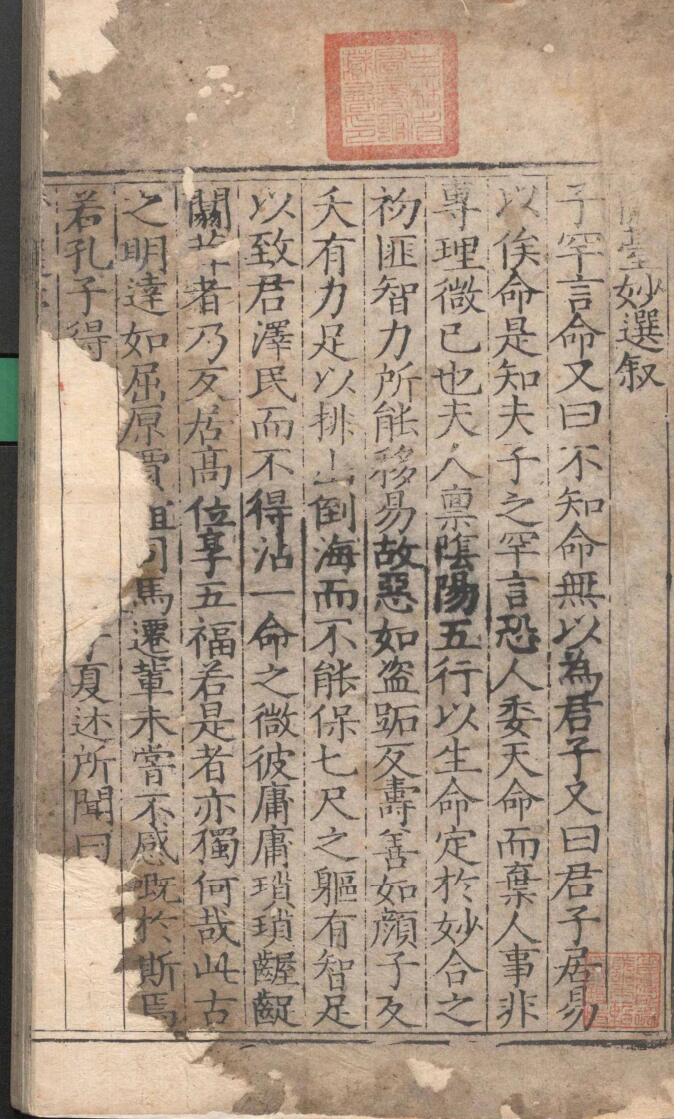 臺妙選叙
子罕言命又曰不知命無以為君子又曰君子居易
以俟命是知夫子之罕言恐人委天命而棄人事非
專理微已也夫人禀陰陽五行以生命定於妙合之
初匪智力所能移易故惡如盗跖反壽善如顔子反
夭有力足以排山倒海而不能保七尺之軀有智足
以致君澤民而不得沾一命之微彼庸庸瑣瑣齷齪
闒茸者乃反居高位享五福若是者亦獨何哉此古
之明達如屈原賈誼司馬遷輩未嘗不感嘅於斯焉
若孔子得
夏述所聞曰